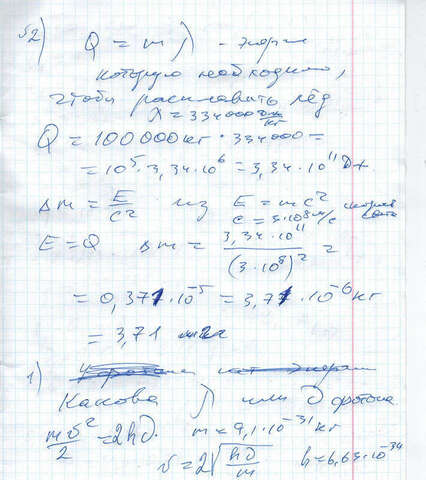 52) Q = m λ - энергия
которую необходимо,
чтобы расплавить лёд
λ = 334000 Дж/кг
Q = 100 000 кг · 334000 =
= 10⁵ · 3,34 · 10⁶ = 3,34 · 10¹¹ Дж
Δm = E/c² из E = mc² скорость света
c = 3·10⁸ м/с
E = Q Δm = 3,34·10¹¹/(3·10⁸)² =
= 0,371·10⁻⁵ = 3,71·10⁻⁶ кг
= 3,71
1)
Какова λ или υ фотона
mυ²/2 = 2hυ. m = 9,1·10⁻³¹ кг
υ = 2√(hυ/m) h = 6,63·10⁻³⁴